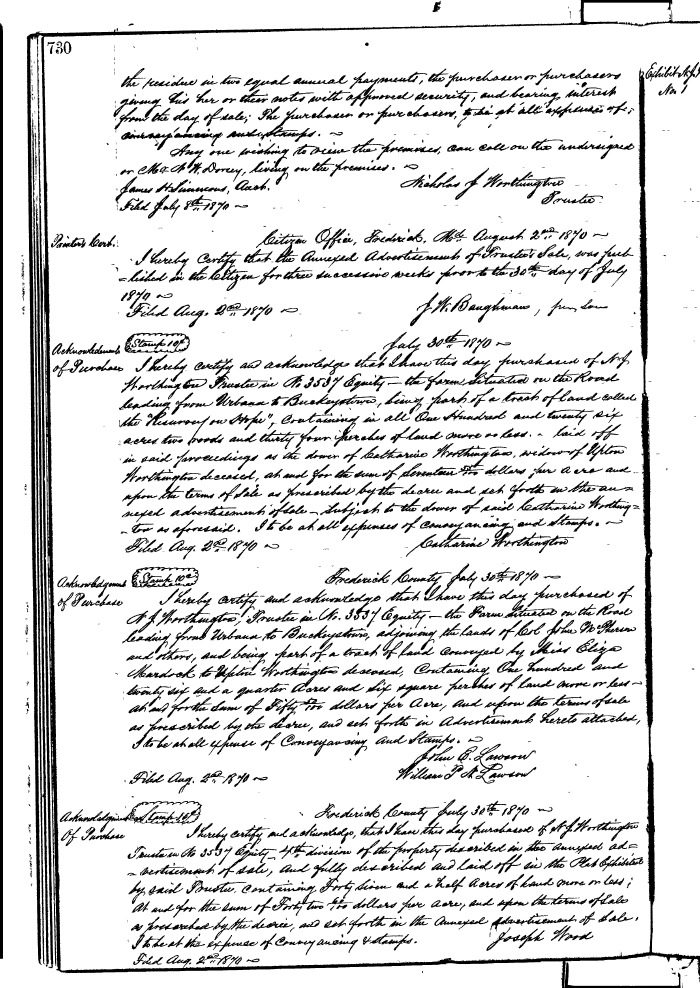 730
the residue in two equal annual payments, the purchaser or purchasers
giving his her or their notes with approved security, and bearing interest
from the day of sale; The purchaser or purchasers, to be at all expenses of
conveyancing and Stamps. ~
Any one wishing to view the premises, can call on the undersigned
or Mr N. W. Dorsey, living on the premises. ~
James H Simmons, Auct. Nicholas J Worthington
Filed July 8th 1870 ~ Trustee
Exhibit N.J.
No 1
Printer's Cert. Citizen Office, Frederick, Md. August 2nd 1870 ~
I hereby certify that the Annexed Advertisement of Trustee's Sale, was pub=
=lished in the Citizen for three successive weeks prior to the 30th day of July
1870 ~
Filed Aug. 2nd 1870 ~ J. W. Baughman,
Acknowledgment Stamp 10c July 30th 1870 ~
of Purchase I hereby certify and acknowledge that I have this day purchased of N.J.
Worthington Trustee in No 3537 Equity — the farm situated on the Road
leading from Urbana to Buckeystown, being part of a tract of land called
the "Resurvey on Hope", containing in all One Hundred and twenty six
acres two roods and thirty four perches of land more or less. ~ laid off
in said proceedings as the dower of Catharine Worthington, widow of Upton
Worthington deceased, at and for the sum of Seventeen dollars per Acre and
upon the terms of Sale as prescribed by the decree and set forth in the an=
nexed advertisement of sale — Subject to the dower of said Catharine Worthing=
=ton as aforesaid. I to be at all expenses of conveyancing and Stamps. ~
Filed Aug. 2nd 1870 ~ Catharine Worthington
Acknowledgment Stamp 10c Frederick County July 30th 1870 ~
of Purchase I hereby certify and acknowledge that I have this day purchased of
N J Worthington, Trustee in No. 3537 Equity — the Farm situated on the Road
leading from Urbana to Buckeystown, adjoining the lands of Col John McPherson
and others, and being part of a tract of land conveyed by Miss Eliza
Murdock to Upton Worthington deceased, Containing One hundred and
twenty six and a quarter Acres and six square perches of land more or less —
at and for the sum of Fifty dollars per Acre, and upon the terms of sale
as prescribed by the decree, and set forth in Advertisement hereto attached,
I to be at all expense of Conveyancing and Stamps. ~
John E. Lawson
Filed Aug. 2nd 1870 ~ William P. Lawson
Acknowledgment Stamp 10c Frederick County July 30th 1870 ~
Of Purchase I hereby certify and acknowledge, that I have this day purchased of N J Worthington
Trustee in No 3537 Equity 4th division of the property described in the annexed ad=
=vertisement of sale, and fully described and laid off in the Plat Exhibited
by said Trustee, containing Forty Seven and a half Acres of land more or less;
At and for the sum of Forty two dollars per acre, and upon the terms of Sale
as prescribed by the decree, and set forth in the Annexed advertisement of Sale.
I to be at the expense of Conveyancing & stamps. Joseph Wood
Filed Aug. 2nd 1870 ~